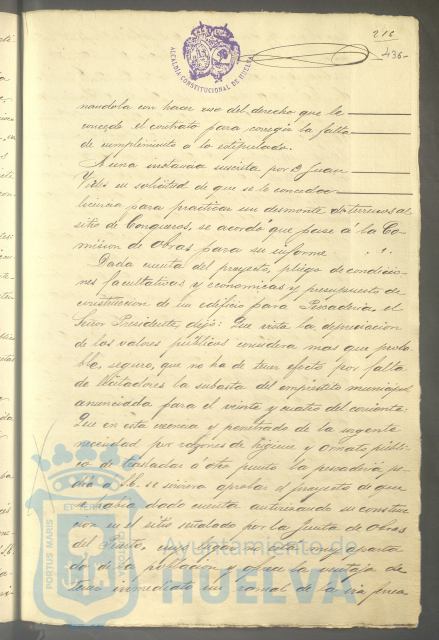 216
436-
ALCALDÍA CONSTITUCIONAL DE HUELVA
nandola con hacer uso del derecho que le
concede el contrato para corregir la falta
de cumplimiento a lo estipulado.
A una instancia suscrita por D. Juan
en solicitud de que se le conceda
licencia para practicar un desmonte de terrenos al
sitio de Conqueros, se acordó que pase a la Co-
mision de Obras para su informe.
Dada cuenta del proyecto, pliego de condicio-
nes facultativas y economicas y presupuesto de
construccion de un edificio para Pescaderia, el
Señor Presidente, dijo: Que vista la depreciacion
de los valores publicos considera mas que proba-
ble, seguro, que no ha de tener efecto por falta
de licitadores la subasta del emprestito municipal
anunciada para el veinte y cuatro del corriente.
Que en esta creencia y penetrado de la urgente
necesidad por razones de higiene y ornato públi-
co de trasladar a otro punto la pescaderia pe-
dia a S.E. se sirviera aprobar el proyecto de que
se habia dado cuenta autorizando su construc-
cion en el sitio señalado por la Junta de Obras
del Puerto, cuyo lugar no está muy aparta-
do de la poblacion y ofrece la ventaja de
tener inmediato un ramal de la via ferrea
PORTUS MARIS ET TERRAE CUSTODIA
Ayuntamiento de
HUELVA